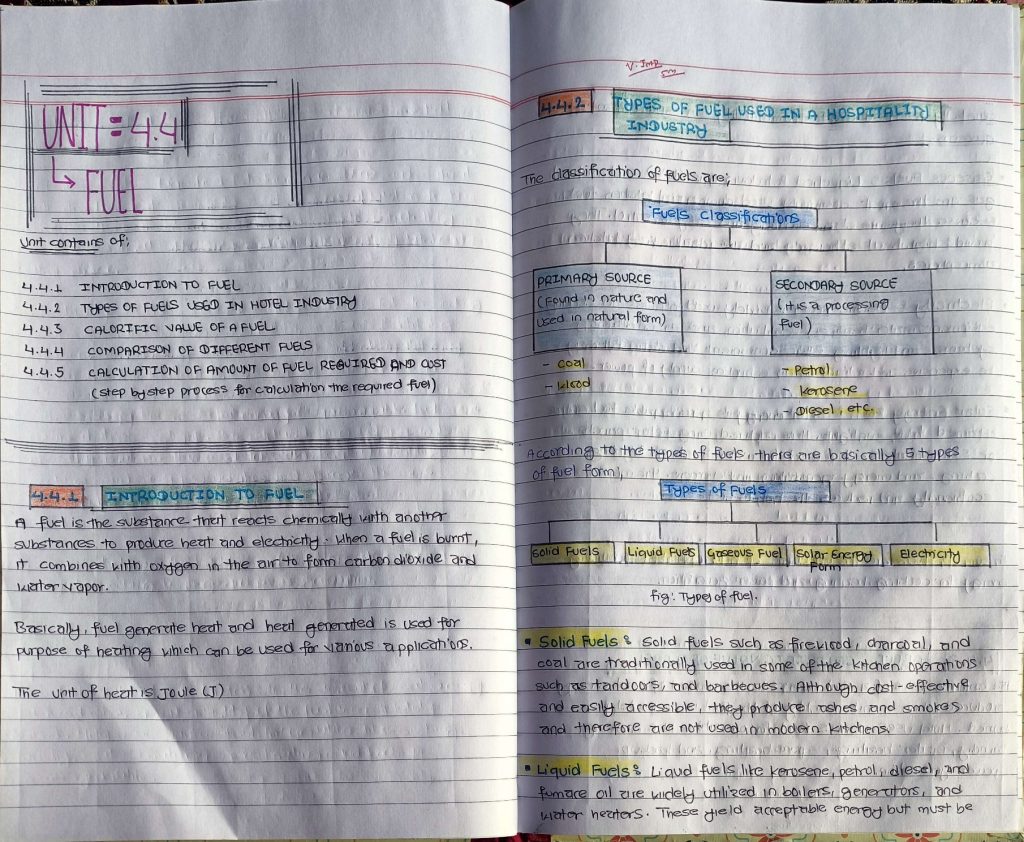 UNIT = 4.4
↳ FUEL
Unit contains of;
4.4.1 INTRODUCTION TO FUEL
4.4.2 TYPES OF FUELS USED IN HOTEL INDUSTRY
4.4.3 CALORIFIC VALUE OF A FUEL
4.4.4 COMPARISON OF DIFFERENT FUELS
4.4.5 CALCULATION OF AMOUNT OF FUEL REQUIRED AND COST
(step by step process for calculation the required fuel)
4.4.1 INTRODUCTION TO FUEL
A fuel is the substance that reacts chemically with another
substances to produce heat and electricity. When a fuel is burnt,
it combines with oxygen in the air to form carbon dioxide and
water vapor.
Basically, fuel generate heat and heat generated is used for
purpose of heating which can be used for various applications.
The unit of heat is Joule (J)
V. Imp
4.4.2 TYPES OF FUEL USED IN A HOSPITALITY
INDUSTRY
The classification of fuels are;
Fuels Classifications
PRIMARY SOURCE
(Found in nature and
used in natural form)
- Coal
- Wood
SECONDARY SOURCE
(It is a processing
fuel)
- Petrol
- Kerosene
- Diesel, etc.
According to the types of fuels, there are basically 5 types
of fuel form;
Types of Fuels
Solid Fuels Liquid Fuels Gaseous Fuel Solar Energy Electricity
Form
fig: Types of fuel.
• Solid Fuels: Solid fuels such as firewood, charcoal, and
coal are traditionally used in some of the kitchen operations
such as tandoors, and barbecues. Although cost-effective
and easily accessible, they produce ashes and smokes
and therefore are not used in modern kitchens.
• Liquid Fuels: Liqud fuels like kerosene, petrol, diesel, and
furnace oil are widely utilized in boilers, generators, and
water heaters. These yield acceptable energy but must be